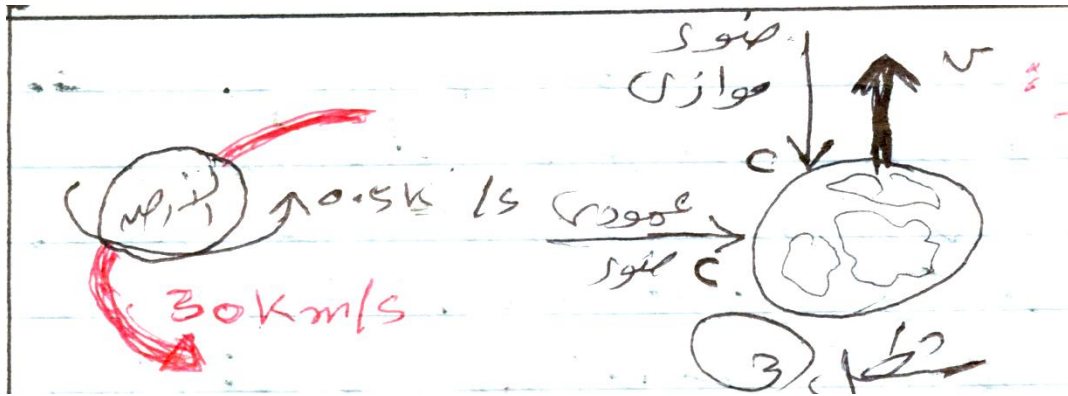 ضوء
موازى
v
c
الأرض
0.5k /s
عمودى
ضوء c
30Km/s
شكل 3